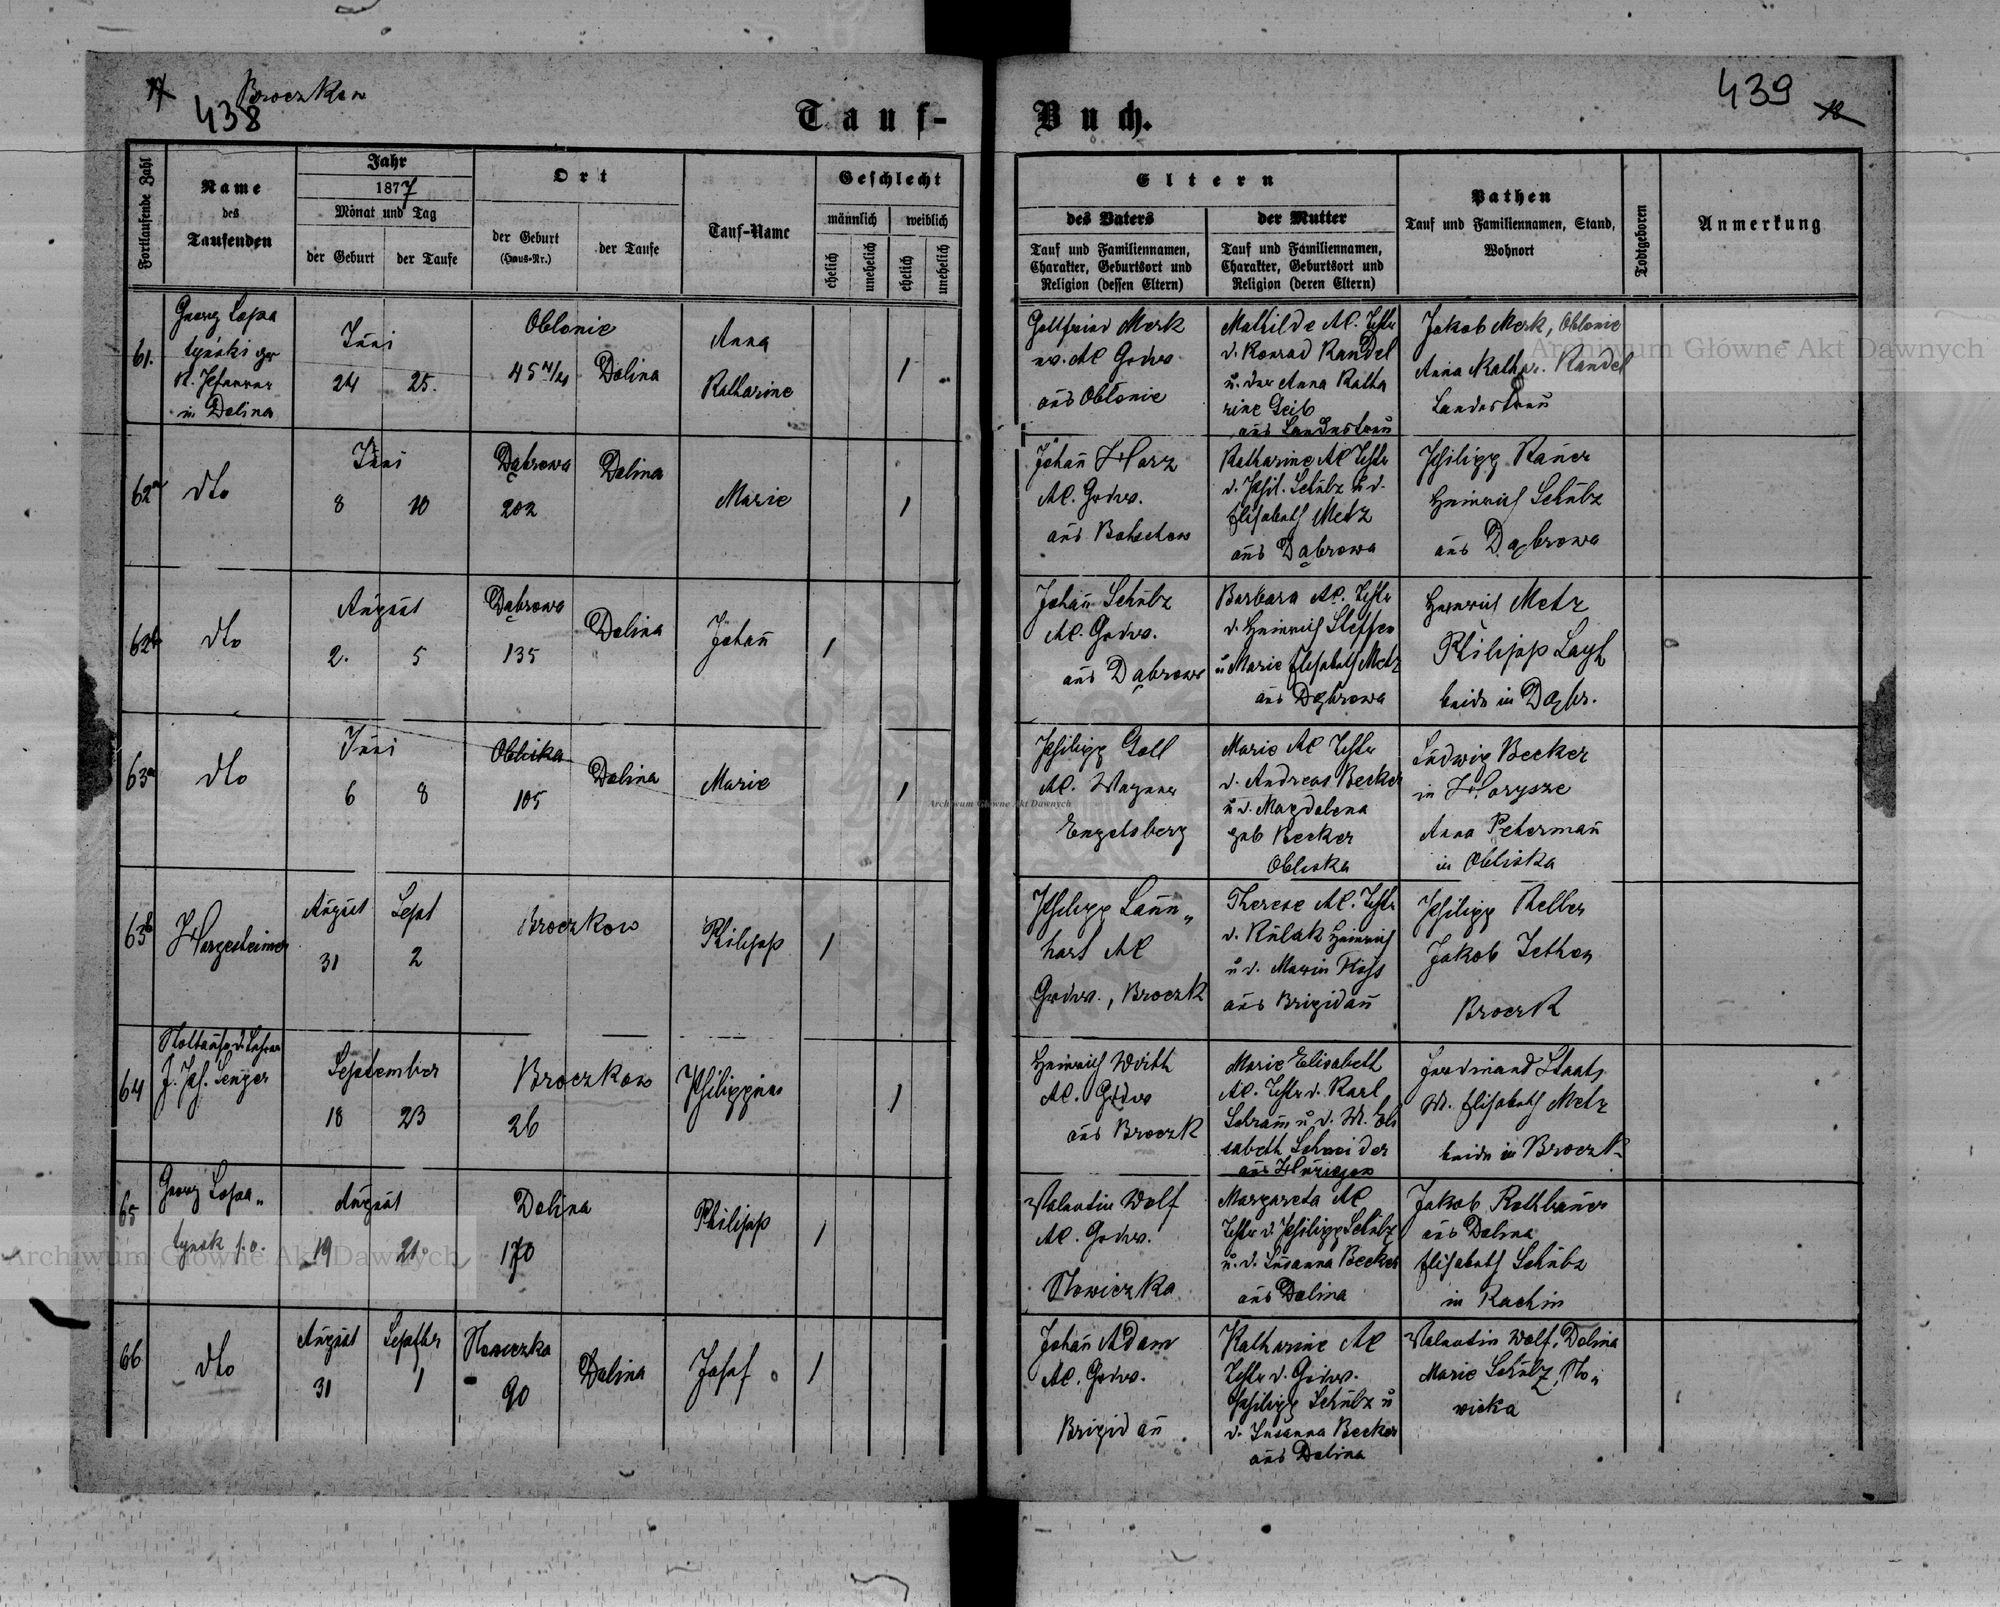 17
Broczkow
438
439
18
Tauf-Buch.
Fortlaufende Zahl
Name
des
Taufenden
Jahr
1877
Monat und Tag
der Geburt
der Taufe
Ort
der Geburt
(Haus-Nr.)
der Taufe
Tauf-Name
Geschlecht
männlich
weiblich
ehelich
unehelich
ehelich
unehelich
Eltern
des Vaters
Tauf und Familiennamen,
Charakter, Geburtsort und
Religion (dessen Eltern)
der Mutter
Tauf und Familiennamen,
Charakter, Geburtsort und
Religion (deren Eltern)
Pathen
Tauf und Familiennamen, Stand,
Wohnort
Todtgeboren
Anmerkung
61.
Georg Lopa
tyński gr
K. Pfarrer
in Dolina
Juni
24
25.
Oblonie
45
Dolina
Anna
Katharine
1
Gottfried Merk
ev. AC Grdw.
aus Oblonie
Mathilde AC. Tchtr
v. Konrad Kandel
u. der Anna Katha
rine Geib
aus Landestreu
Jakob Merk, Oblonie
Anna Kathar. Kandel
Landestreu
62a
dto
Juni
8
10
Dąbrowa
202
Dolina
Marie
1
Johan Harz
AC. Grdw.
aus Bolechow
Katharine AC Tchtr
v. Phil. Schulz u d.
Elisabeth Metz
aus Dąbrowa
Philipp Bauer
Heinrich Schulz
aus Dąbrowa
62b
dto
August
2.
5
Dąbrowa
135
Dolina
Johan
1
Johan Schulz
AC. Grdw.
aus Dąbrowa
Barbara AC. Tchtr
v. Heinrich Steffen
u Marie Elisabeth Metz
aus Dąbrowa
Heinrich Metz
Philipp
beide in Dąbr.
63a
dto
Juni
6
8
Obliska
105
Dolina
Marie
1
Philipp Goll
AC. Wagner
Engelsberg
Marie AC Tchtr
v. Andreas Becker
u d. Magdalena
geb Becker
Obliska
Ludwig Becker
in Horysze
Anna Peterman
in Obliska
63b
Hargesheimer
August
31
Sept
2
Broczkow
Philipp
1
Philipp Laun„
hart AC
Grdw., Broczk
Therese AC. Tchtr
v. Kulak Heinrich
u d.
aus Brigidau
Philipp Kelber
Jakob
Broczk
64
Nottaufe d. Lehrer
J. Ph. Senger
September
18
23
Broczkow
26
Philippine
1
Heinrich Wirth
AC. Grdw
aus Broczk
Marie Elisabeth
AC. Tchtr v. Karl
Schram u d. M. Eli
sabeth Schneider
aus
Ferdinand Staats
M. Elisabeth Metz
beide in Broczk
65
Georg Lopa„
tynsk
August
19
21.
Dolina
170
Philipp
1
Valentin Wolf
AC. Grdw.
Nowiczka
Margareta AC
Tchtr v. Philipp Schulz
u. d. Susanna Becker
aus Dolina
Jakob Rothbauer
aus Dolina
Elisabeth Schulz
in Rachin
66
dto
August
31
Septbr
1
Nowiczka
90
Dolina
Josef
1
Johan Adam
AC. Grdw.
Brigidau
Katharine AC
Tchtr v. Grdw.
Philipp Schulz u
d. Susanna Becker
aus Dolina
Valentin Wolf, Dolina
Marie Schulz, No„
wicka
Archiwum Główne Akt Dawnych
Archiwum Główne Akt Dawnych
Archiwum Główne Akt Dawnych